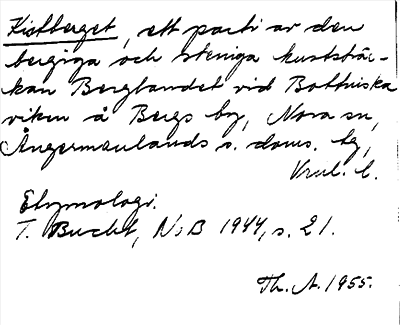 Kistberget, ett parti av den
bergiga och steniga kuststräc-
kan Berglandet vid Bottniska
viken å Bergs by, Nora sn,
Ångermanlands s. doms. tg,
Vnl. l.
Etymologi.
T. Bucht, NoB 1944, s. 21.
Th. A. 1955.